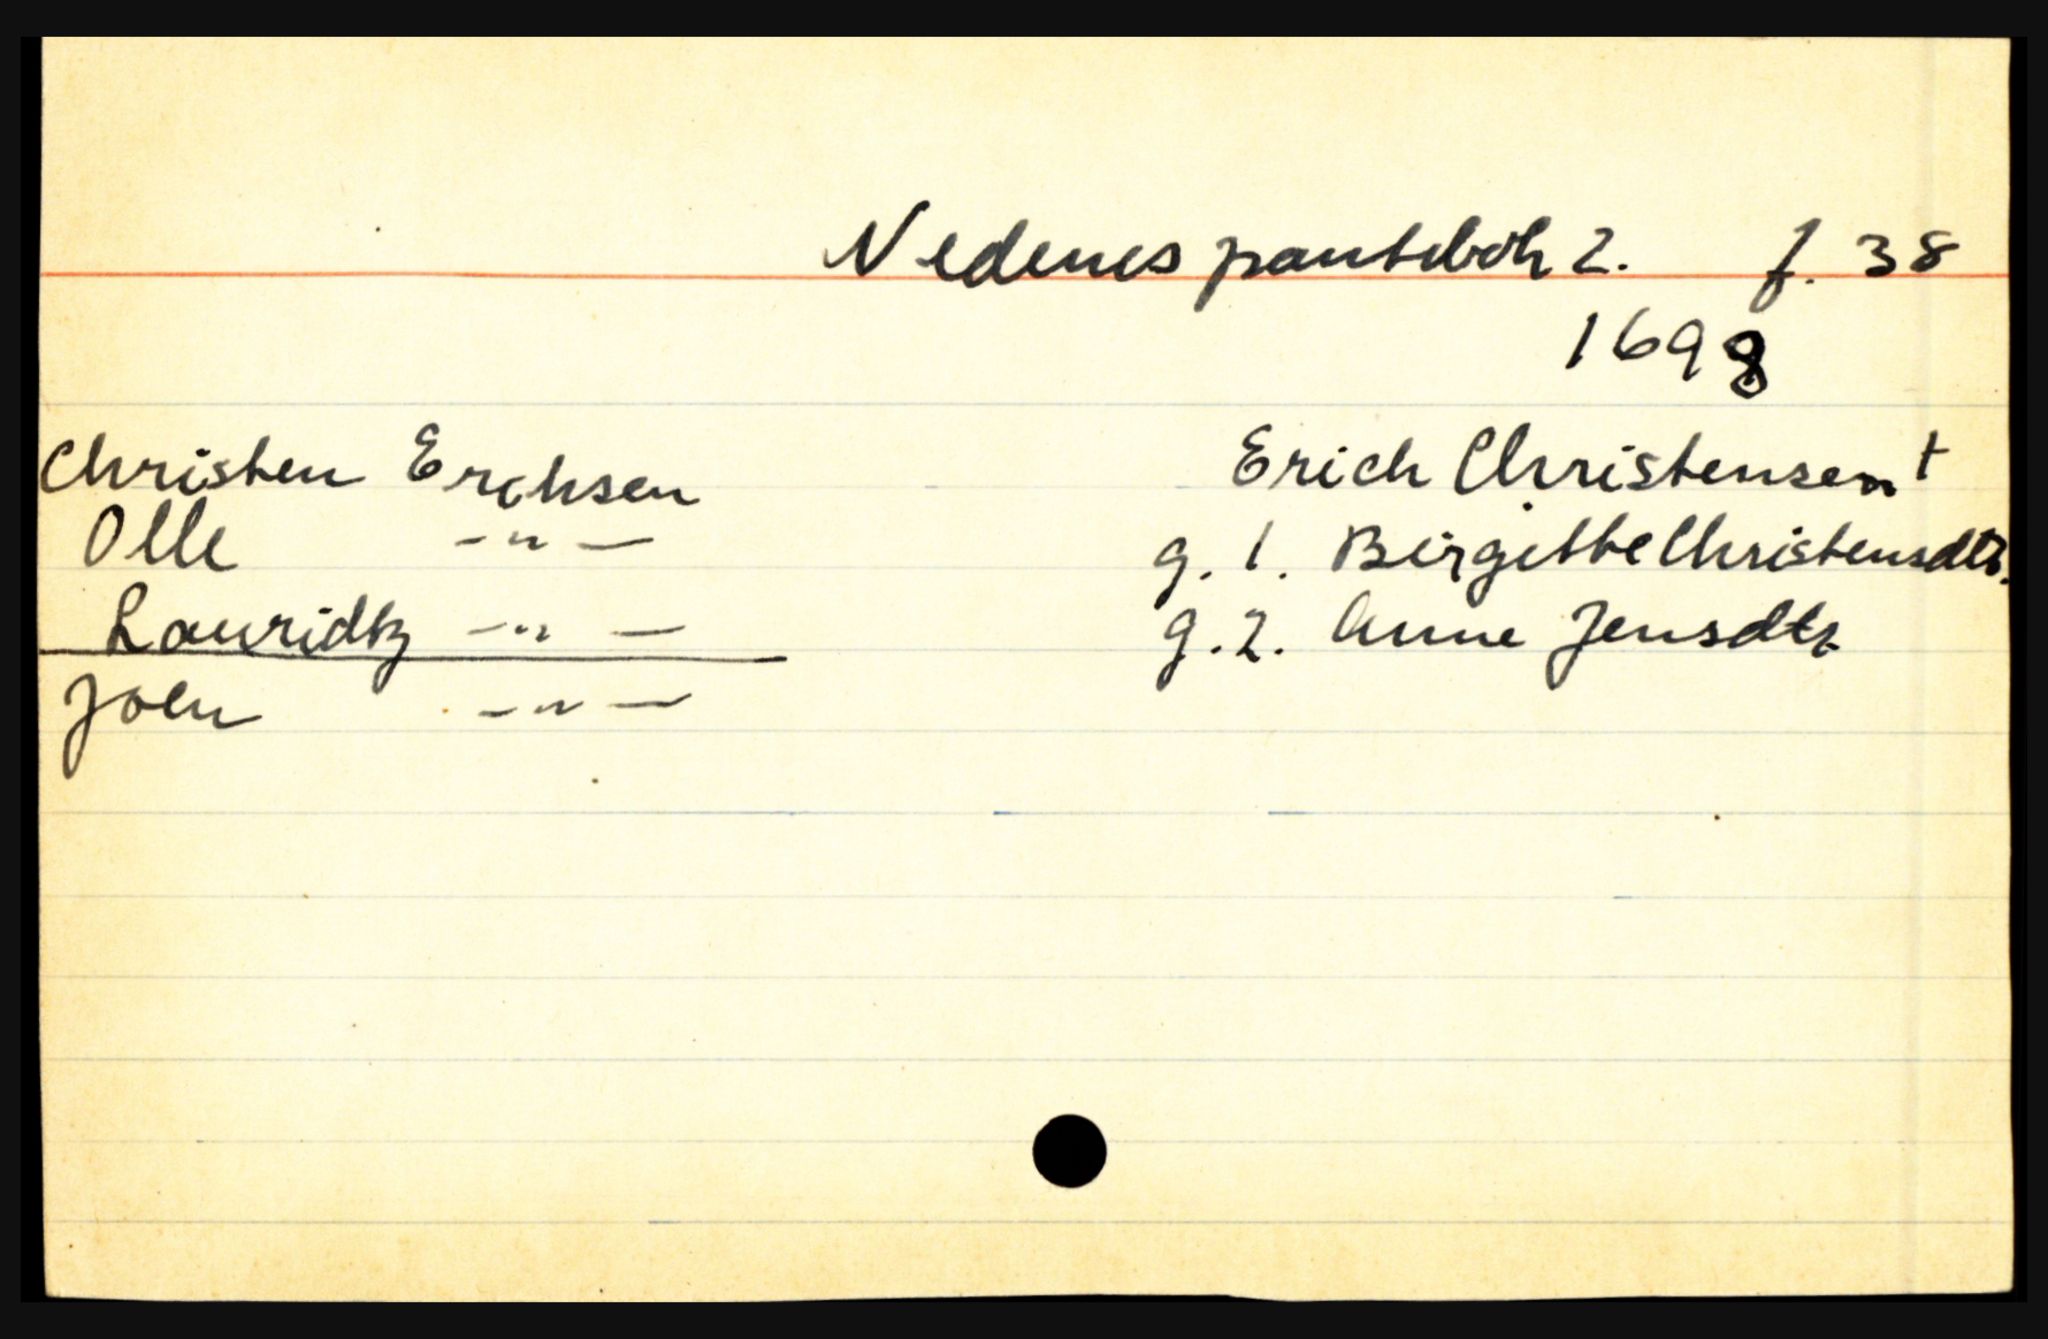 Nedenes pantebok 2. f. 38
1698
Christen Erichsen
Olle -"-
Lauridtz -"-
Joen -"-
Erich Christensen †
g. 1. Birgitte Christensdtr.
g. 2. Anne Jensdtr